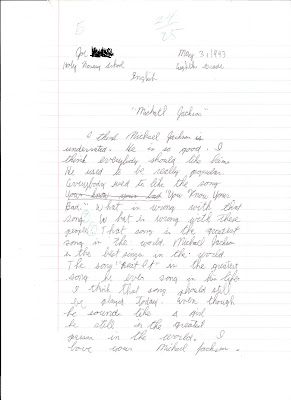 E
24
25
Joe
May 3, 1993
Holy Rosary School
Eighth Grade
English
"Michael Jackson"
I think Michael Jackson is
underrated. He is so good. I
think everybody should like him.
He used to be really popular.
Everybody used to like the song
You Know Your
Bad. What is wrong with that
song? What is wrong with these
people? That song is the greatest
song in the world. Michael Jackson
is the best singer in the world.
The song "Beat It" is the greatest
song he ever sang in his life.
I think that song should still
be played today. Even though
he sounds like a girl
he still is the greatest
person in the world. I
love you Michael Jackson.